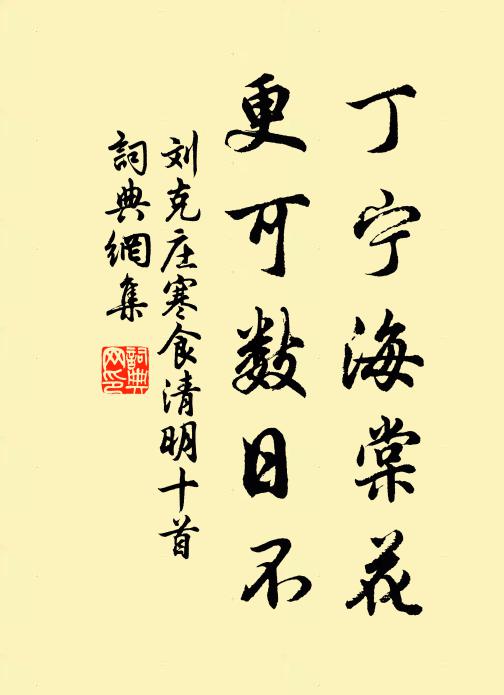 丁宁海棠花
更可数日不
刘克庄寒食清明十首
詞典網集
詞典网印